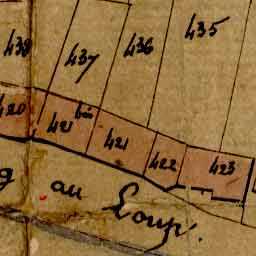 438 437 436 435
420 421 bis 421 422 423
g au Loup.